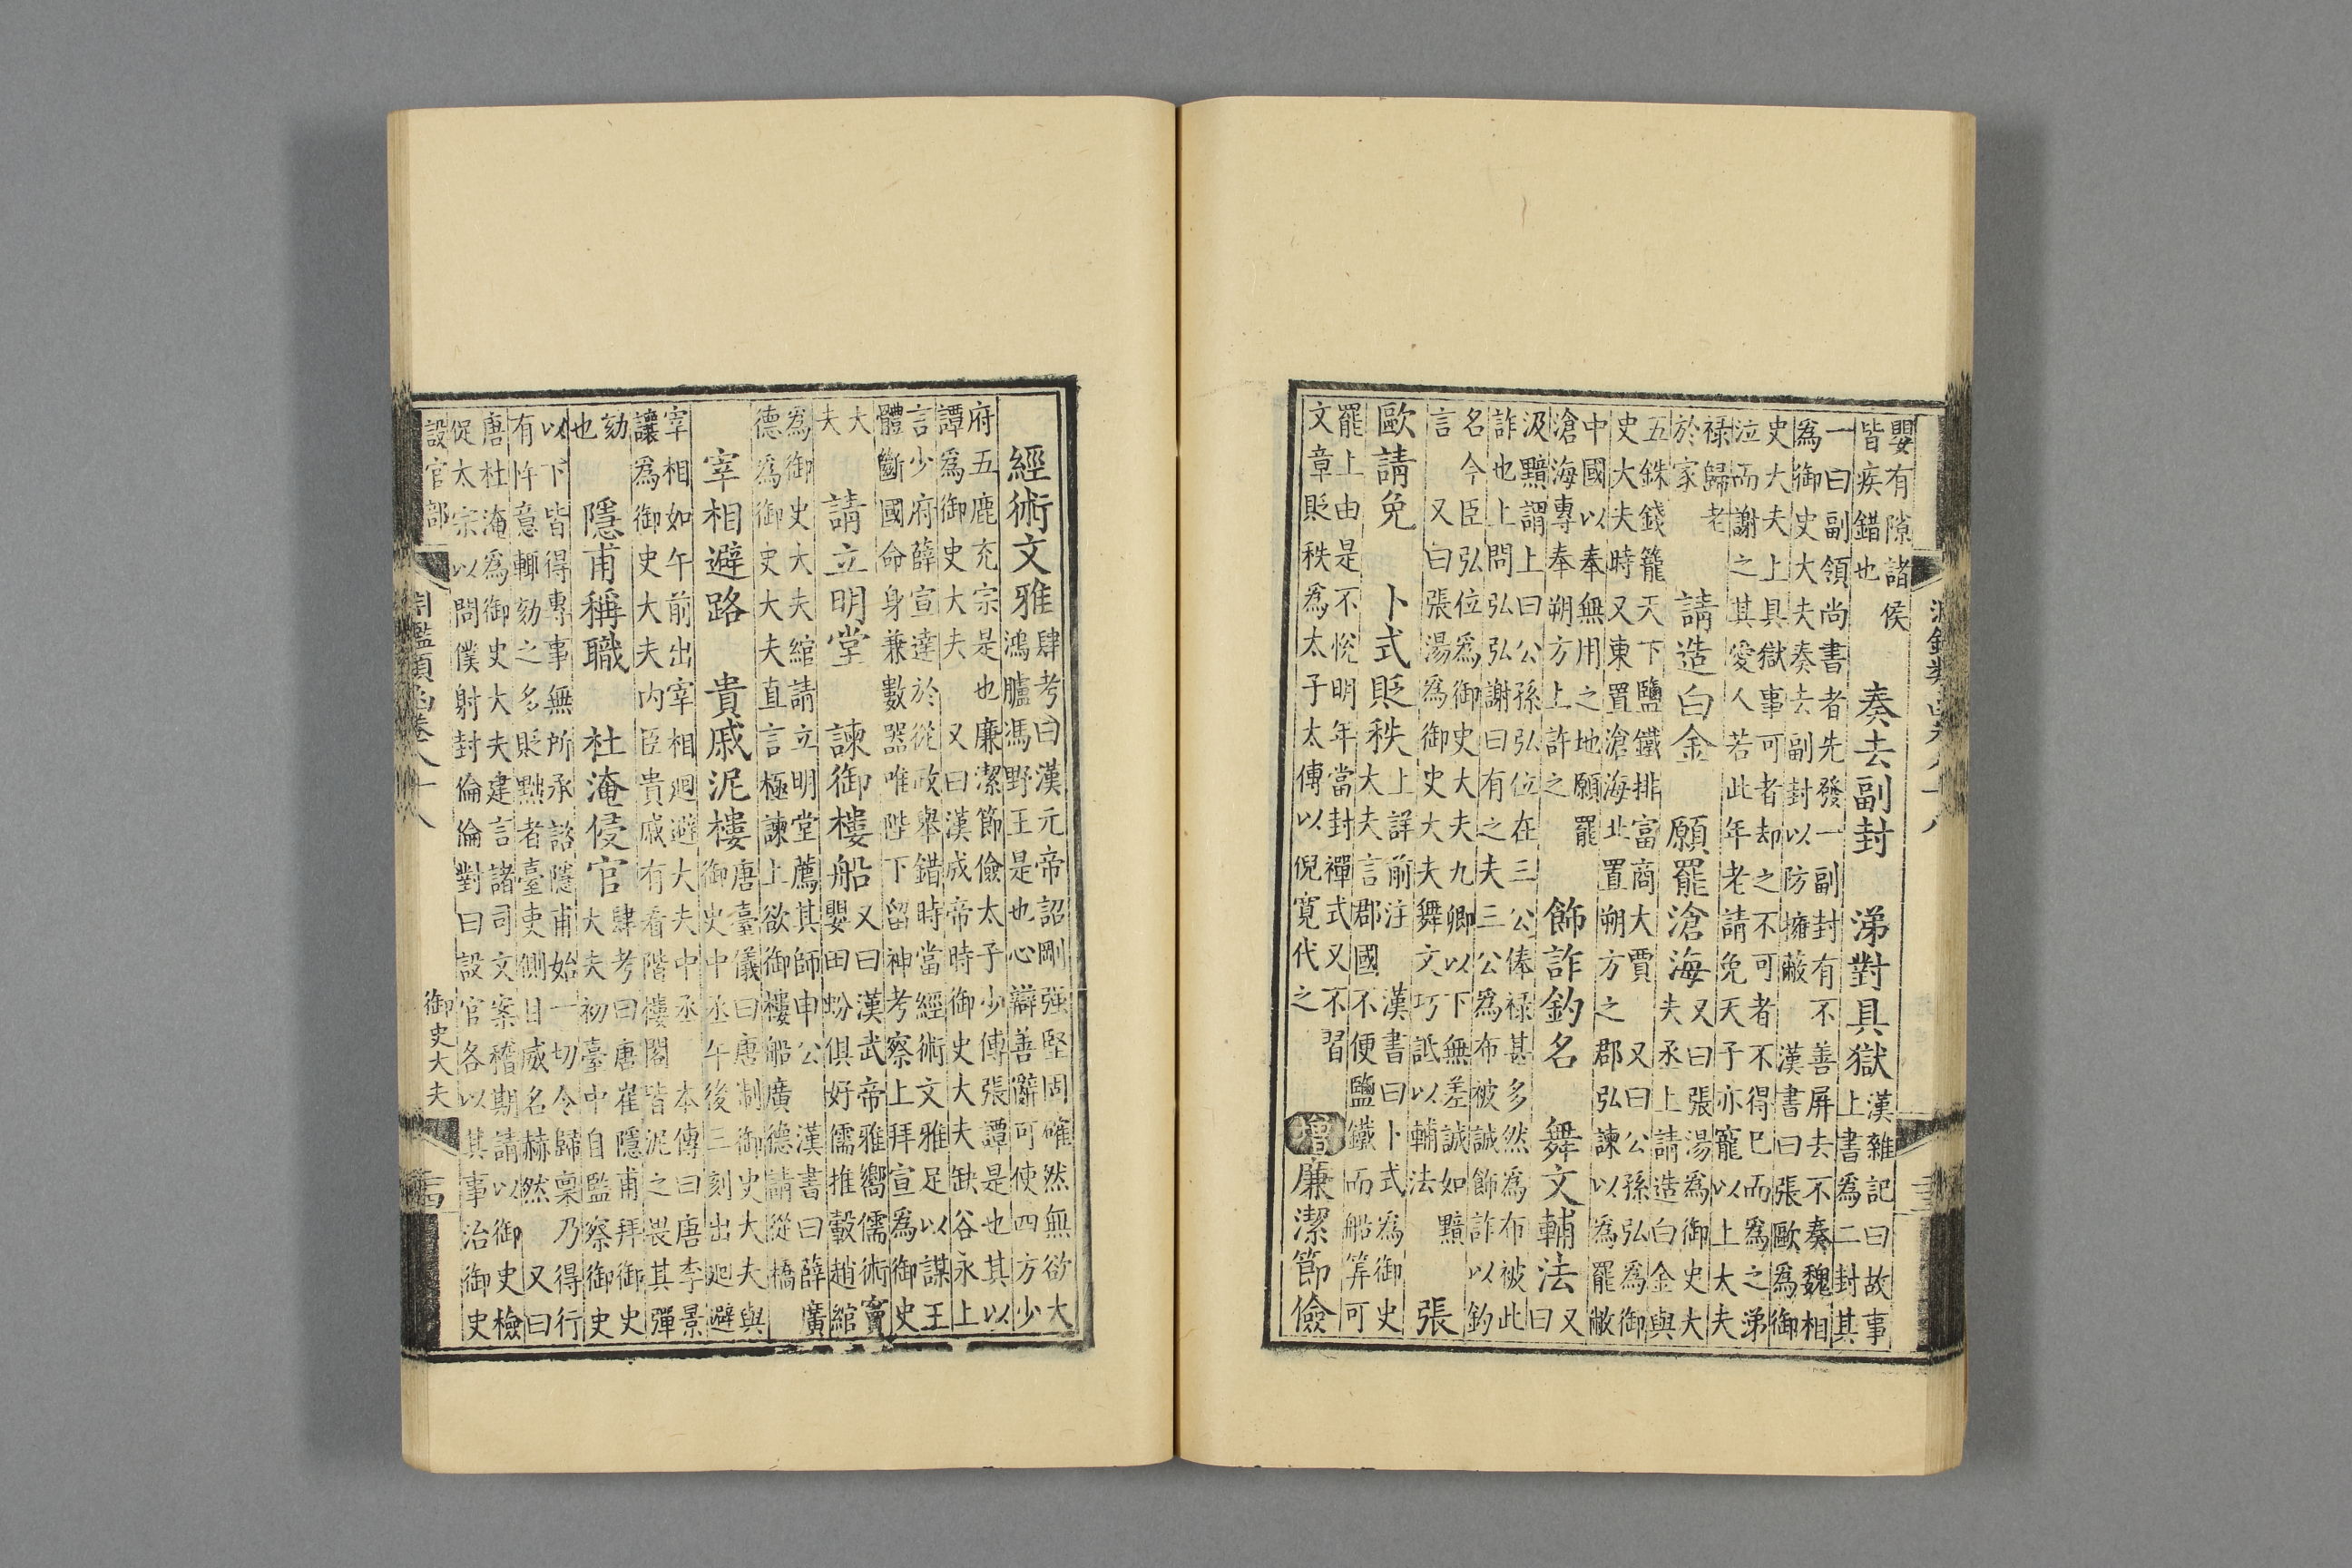 淵鑑類函卷八十八
嬰有隙諸侯
皆疾錯也
奏去副封　涕對具獄
漢雜記曰故事
上書爲二封其
一曰副領尚書者先發一副封有不善屏去不奏魏相
爲御史大夫奏去副封以防擁蔽　漢書曰張歐爲御
史大夫上具獄事可者却之不可者不得已而爲之涕
泣而謝之其愛人若此年老請免天子亦寵以上大夫
祿歸老
於家
請造白金　願罷滄海
又曰張湯爲御史大
夫丞上請造白金與
五銖錢籠天下鹽鐵排富商大賈　又曰公孫弘爲御
史大夫時又東置滄海北置朔方之郡弘諫以爲罷敝
中國以奉無用之地願罷
滄海專奉朔方上許之
飾詐釣名　舞文輔法
又
曰
汲黯謂上曰公孫弘位在三公俸祿甚多然爲布被此
詐也上問弘弘謝曰有之夫三公爲布被誠飾詐以釣
名今臣弘位爲御史大夫九卿以下無差誠如黯
言　又曰張湯爲御史大夫舞文巧詆以輔法
張
歐請免　卜式貶秩
上詳前注　漢書曰卜式爲御史
大夫言郡國不便鹽鐵而船筭可
罷上由是不悅明年當封禪式又不習
文章貶秩爲太子太傅以倪寬代之
增廉潔節儉
經術文雅
肆考曰漢元帝詔剛强堅固確然無欲大
鴻臚馮野王是也心辯善辭可使四方少
府五鹿充宗是也廉潔節儉太子少傅張譚是也其以
譚爲御史大夫　又曰漢成帝時御史大夫缺谷永上
言少府薛宣達於從政舉錯時當經術文雅足以謀王
體斷國命身兼數器唯陛下留神考察上拜宣爲御史
大
夫
請立明堂　諫御樓船
又曰漢武帝雅嚮儒術竇
嬰田蚡俱好儒推轂趙綰
爲御史大夫綰請立明堂薦其師申公　漢書曰薛廣
德爲御史大夫直言極諫上欲御樓船廣德請從橋
宰相避路　貴戚泥樓
唐臺儀曰唐制御史大夫與
御史中丞午後三刻出迴避
宰相如午前出宰相迴避大夫中丞　本傳曰唐李景
讓爲御史大夫內臣貴戚有看階樓閣皆泥之畏其彈
劾
也
隱甫稱職　杜淹侵官
肆考曰唐崔隱甫拜御史
大夫初臺中自監察御史
以下皆得專事無所承諮隱甫始一切令歸稟乃得行
有忤意輒劾之多貶黜者臺吏側目威名赫然　又曰
唐杜淹爲御史大夫建言諸司文案稽期請以御史檢
促太宗以問僕射封倫倫對曰設官各以其事治御史
設官部　御史大夫
鑑類函卷八十八